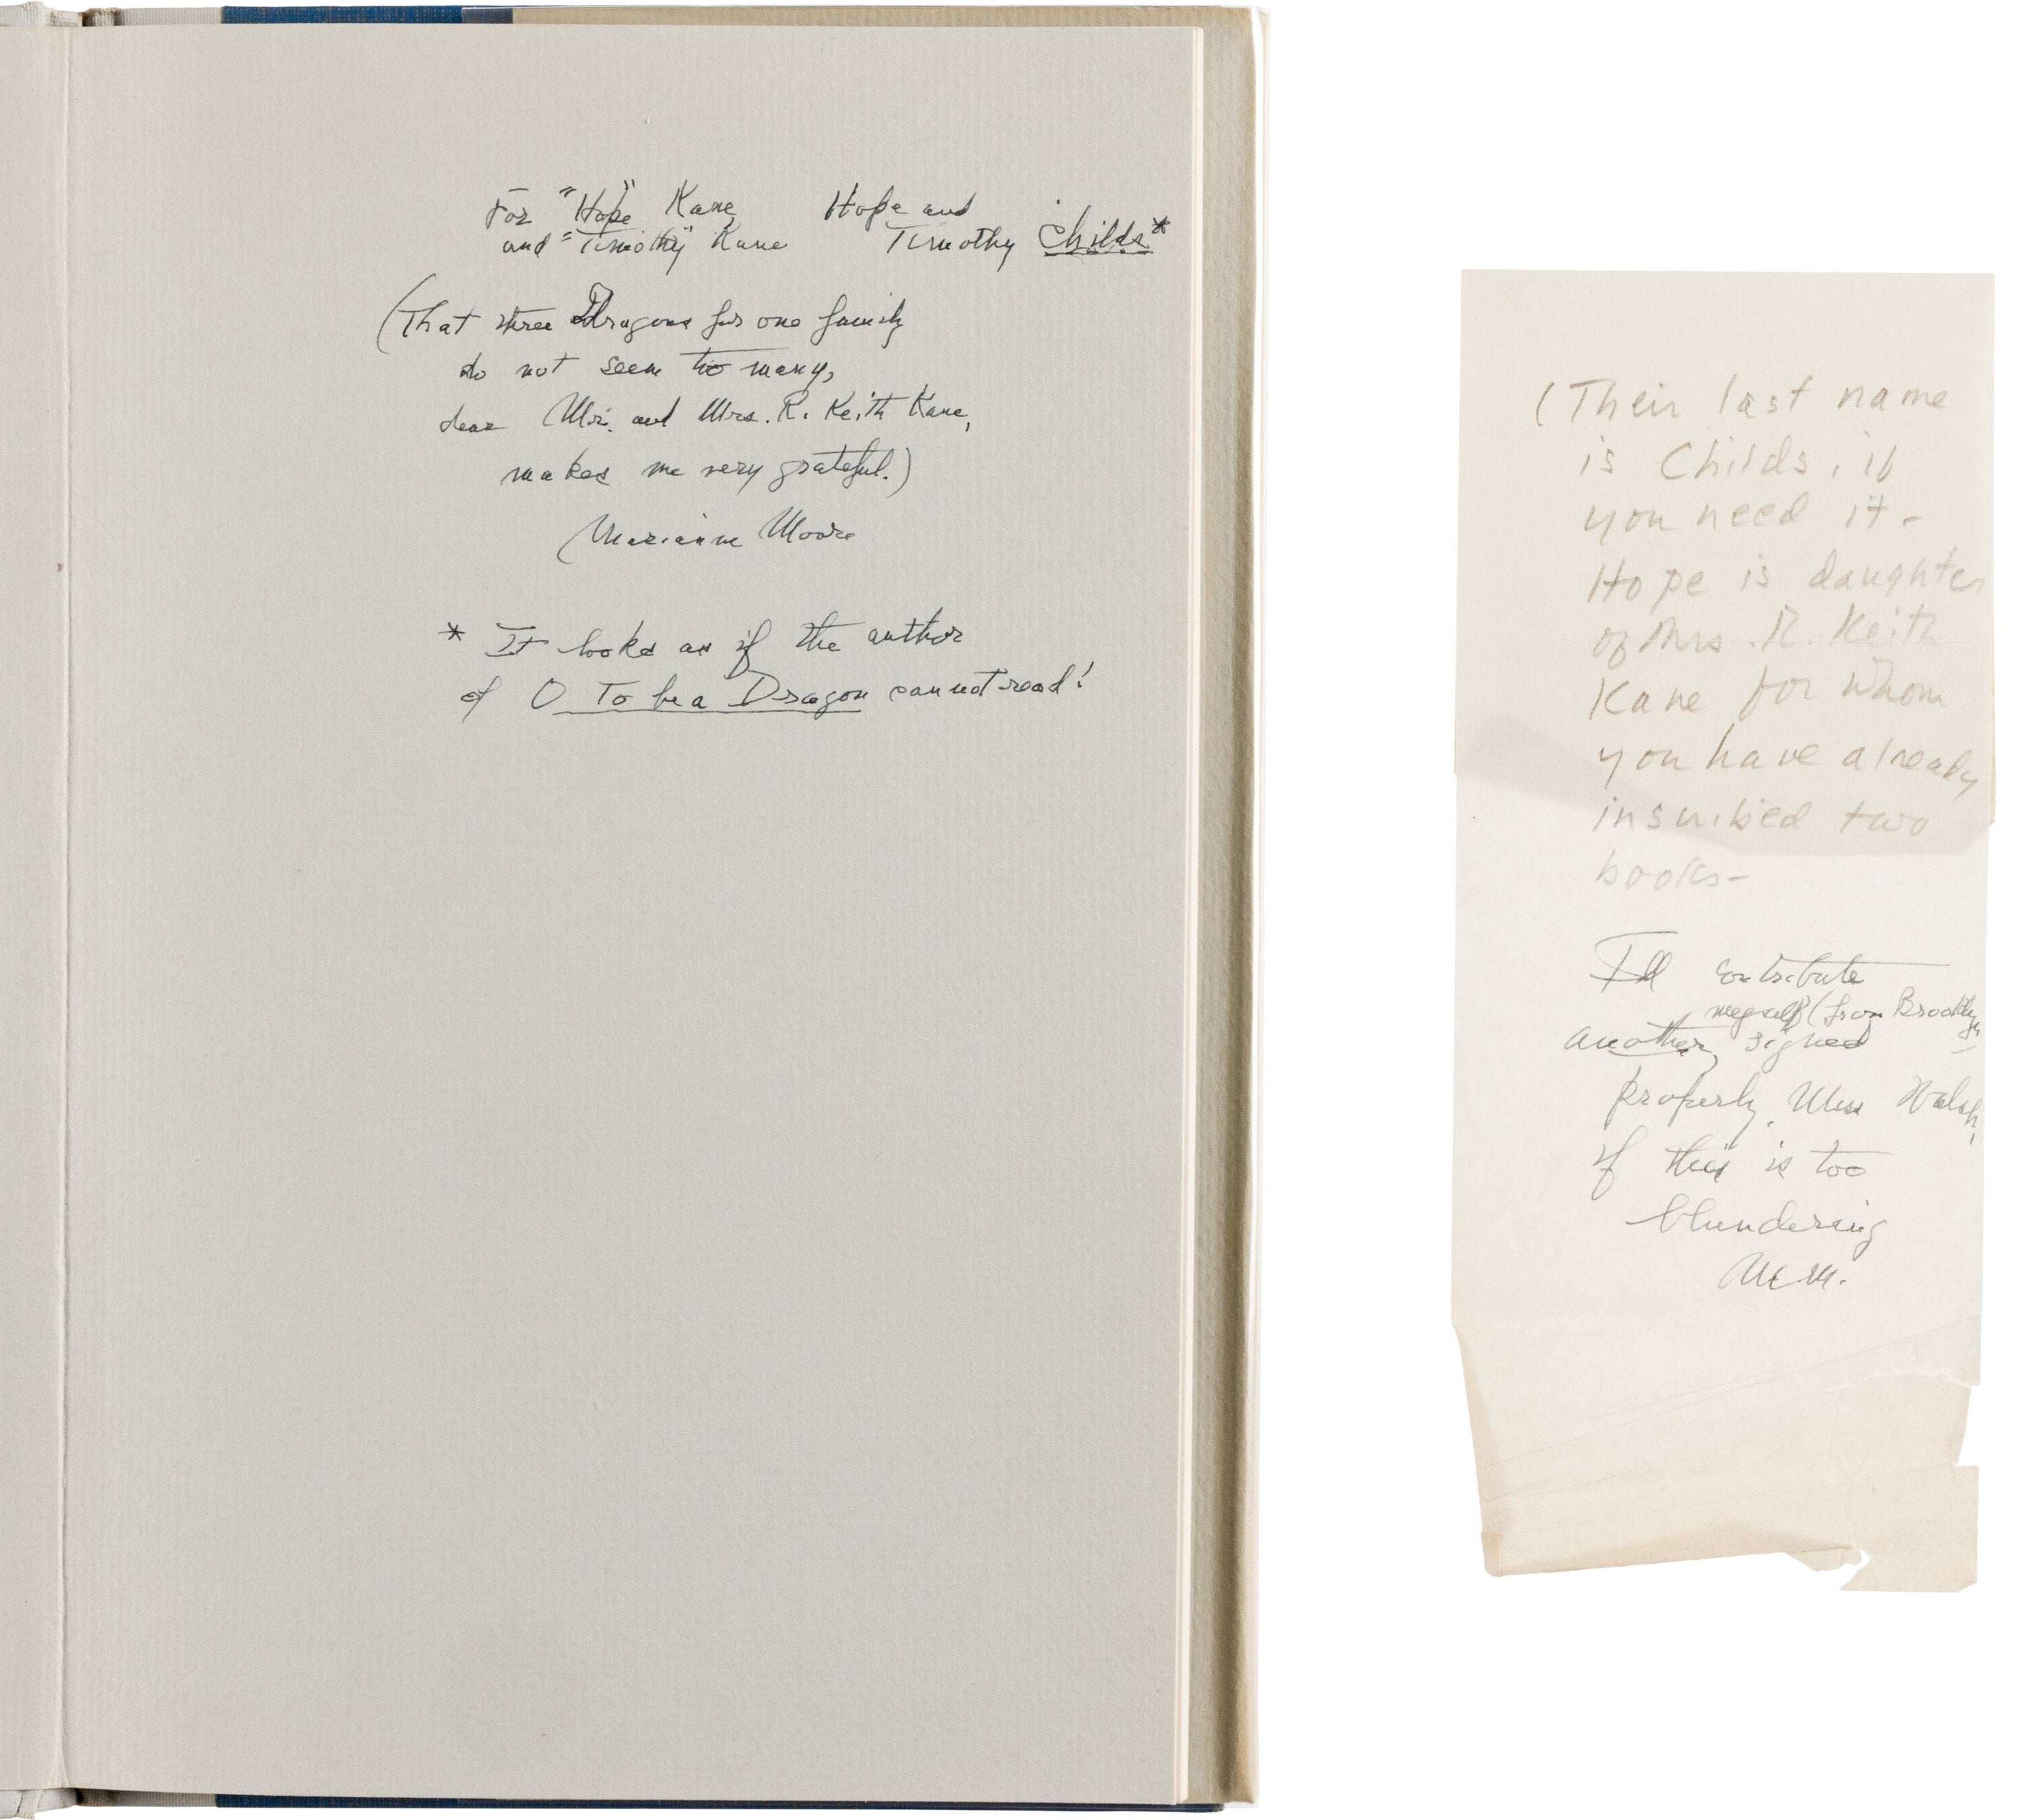 For "Hope" Kane, Hope and
and "Timothy" Kane Timothy Childs*
(That three Dragons for one family
do not seem too many,
dear Mr. and Mrs. R. Keith Kane,
makes me very grateful.)
Marianne Moore
* It looks as if the author
of O To be a Dragon cannot read!
(Their last name
is Childs, if
you need it -
Hope is daughter
of Mrs. R. Keith
Kane for whom
you have already
inscribed two
books -
I'll contribute
myself (from Brooklyn
another, signed
properly, Miss Walsh,
if this is too
blundering
M.M.